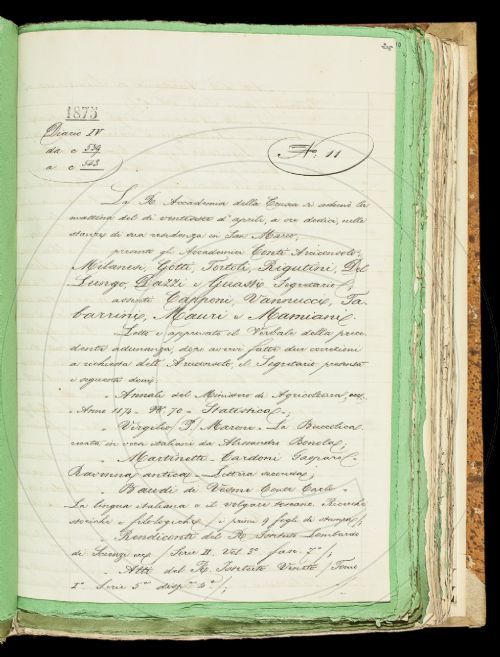 210
1875
Diario IV
da c 539
a c 543
No: 11
La R. Accademia della Crusca si adunò la
mattina del dì ventisette d'aprile, a ore dodici, nelle
stanze di sua residenza in San Marco,
presenti gli Accademici Conti Arciconsolo,
Milanesi, Gotti, Tortoli, Rigutini, Del
Lungo, Dazzi e Guasti Segretario;
assenti Capponi, Vannucci, Ta-
barrini, Mauri e Mamiani.
Letto e approvato il Verbale della prece-
dente adunanza, dopo avere fatte due correzioni
a richiesta dell'Arciconsolo, il Segretario presenta
i seguenti doni:
- Annali del Ministero di Agricoltura, ecc.
- Anno 1874. N. 70 - Statistica -;
- Virgilio P. Marone - La Buccolica
recata in versi italiani da Alessandro;
- Martinetti Cardoni Gaspare -
Ravenna antica - Lettera;
- Baudi di Vesme Conte Carlo -
La lingua italiana e il volgare toscano. Ricerche
storiche e filologiche / i primi 9 fogli di stampa /;
- Rendiconti del R. Istituto Lombardo
di Scienze ecc. / Serie II. Vol. 8° fasc. 7° /;
- Atti del R. Istituto Veneto / Tomo
1° Serie 5a disp. 4a /;